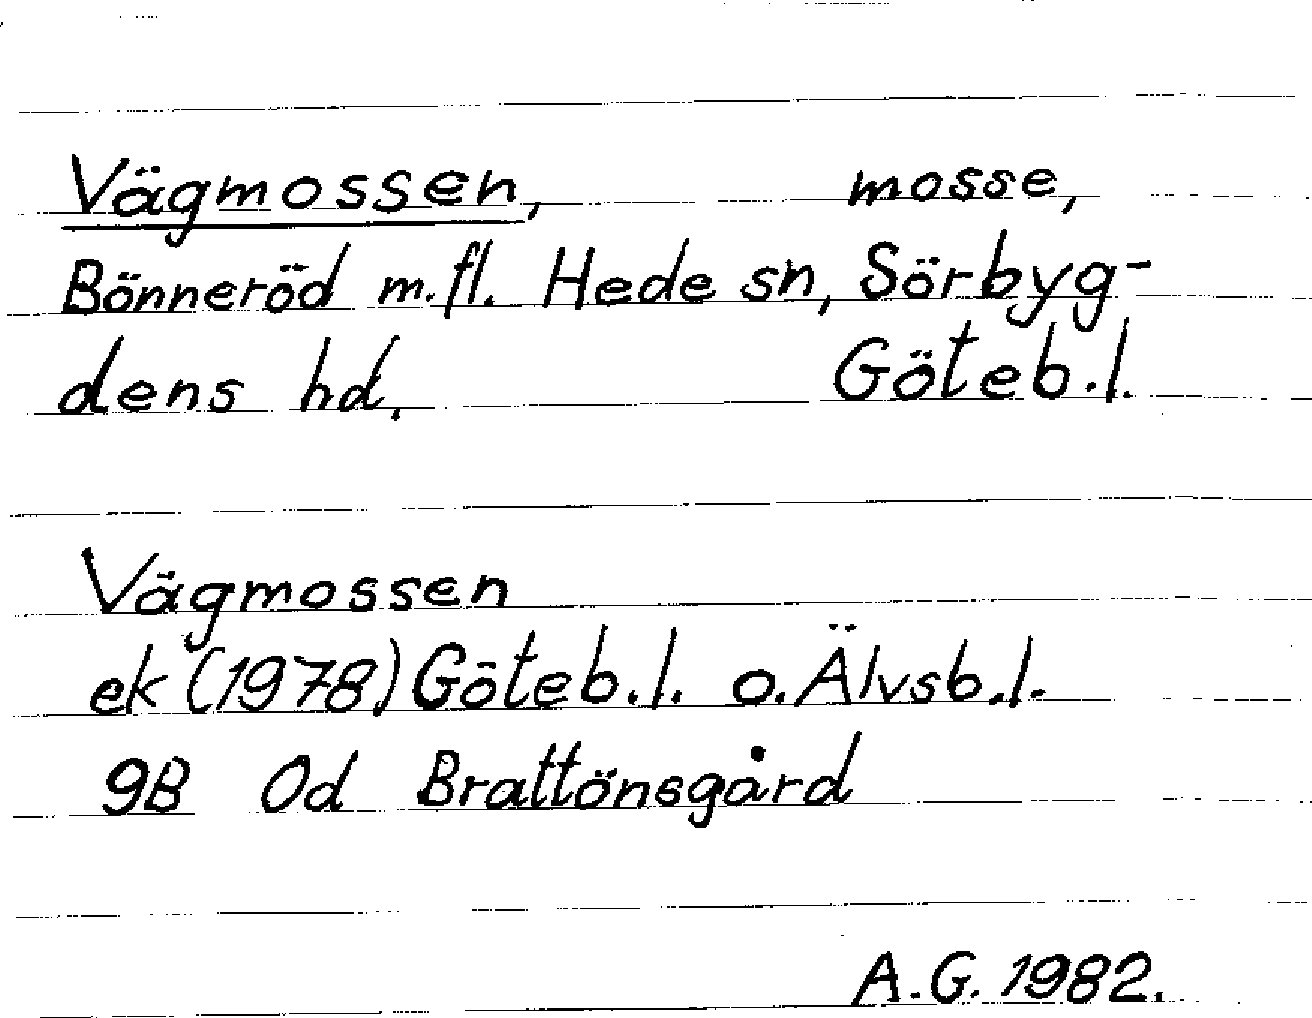 Vägmossen, mosse,
Bönneröd m.fl. Hede sn, Sörbyg-
dens hd. Göteb.l.
Vägmossen
ek (1978) Göteb.l. o. Älvsb.l.
9B 0d Brattönsgård
A.G. 1982.